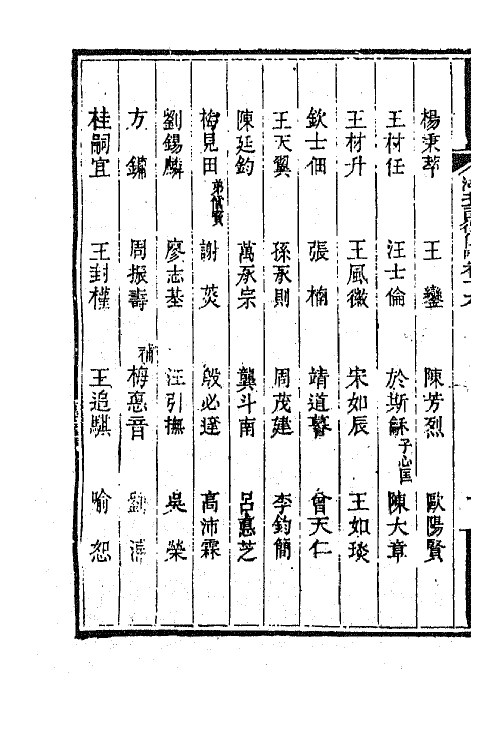 楊秉萃　王鑾　陳芳烈　歐陽賢
王材任　汪士倫　於斯龢子心匡　陳大章
王材升　王風徽　宋如辰　王如琰
欽士佃　張楠　靖道謩　曾天仁
王天翼　孫承則　周茂建　李鈞簡
陳廷鈞　萬承宗　龔斗南　呂蕙芝
梅見田弟賢　謝葵　殷必達　高沛霖
劉錫麟　廖志基　汪引撫　吳榮
方鏞　周振壽　補梅惪音　劉
桂嗣宜　王封權　王追騏　喻恕